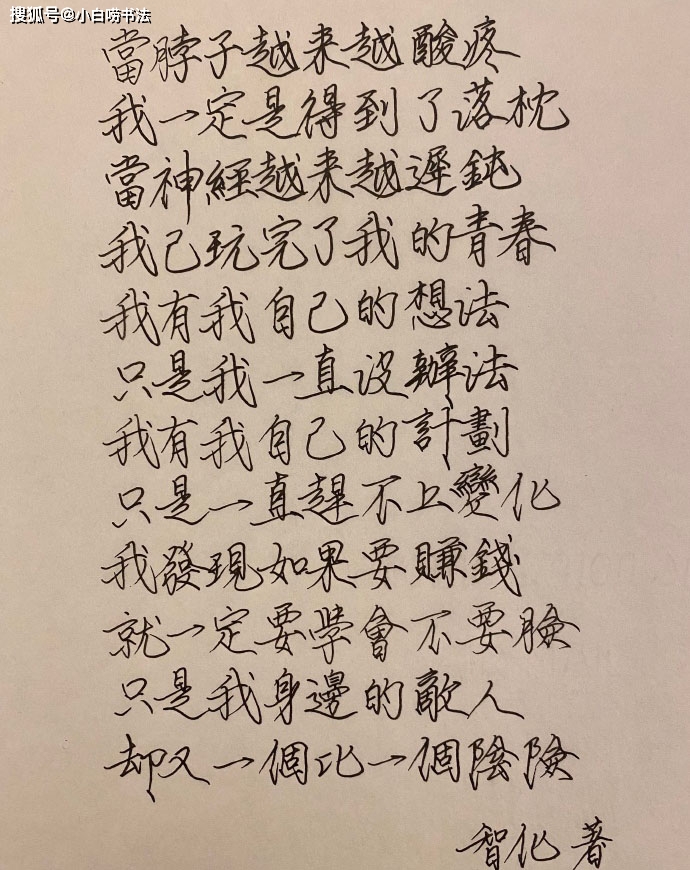 搜狐号@小白唠书法
當脖子越来越酸疼
我一定是得到了落枕
當神經越来越遲鈍
我已玩完了我的青春
我有我自己的想法
只是我一直没辦法
我有我自己的計劃
只是一直趕不上變化
我發現如果要賺錢
就一定要學會不要臉
只是我身邊的敵人
却又一個比一個陰險
智化著